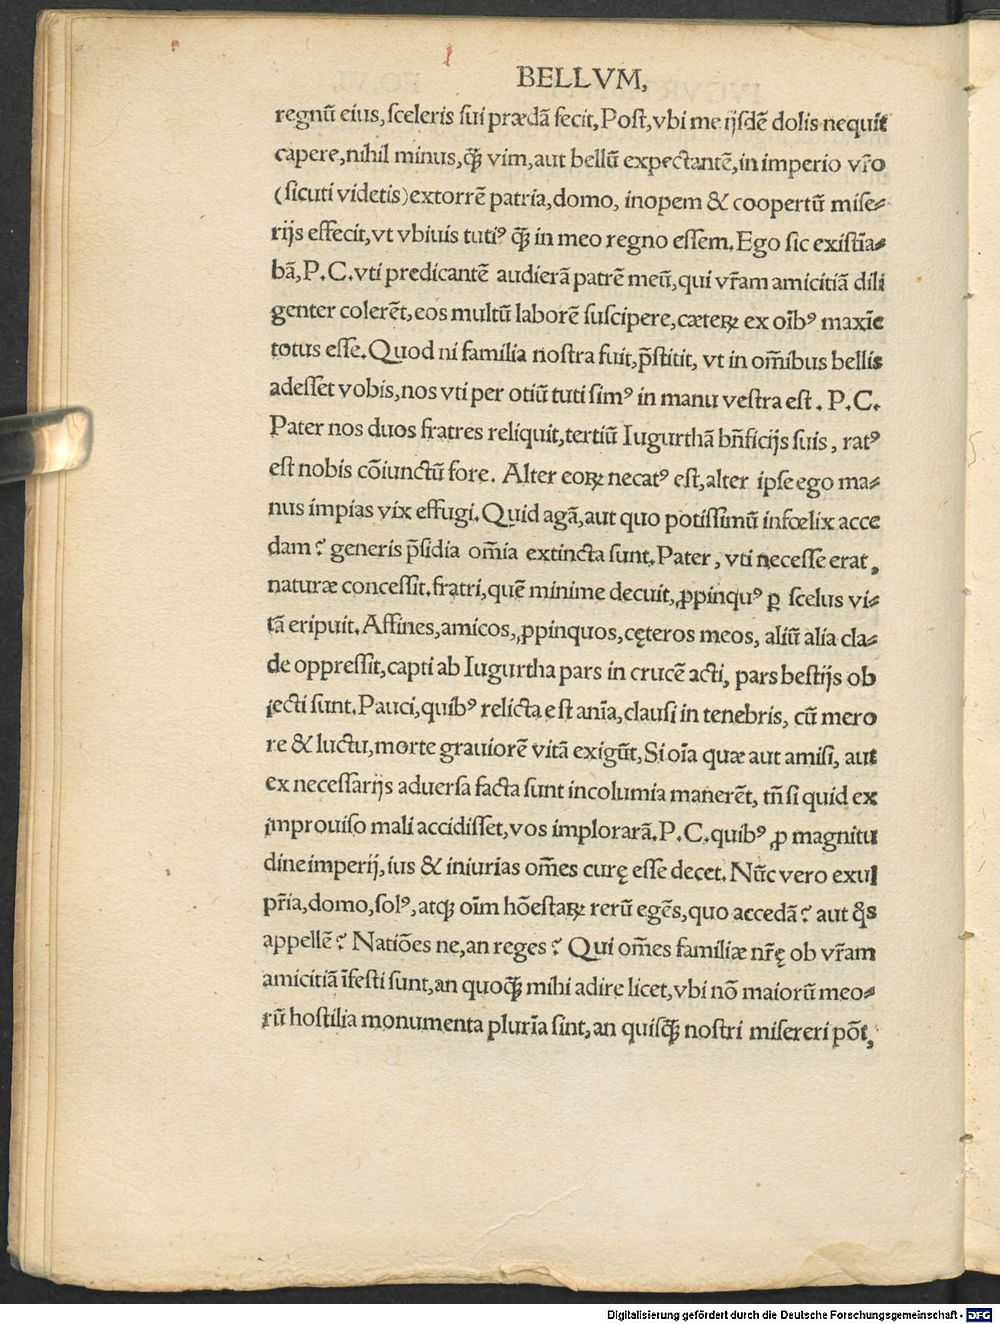 BELLVM,
regnũ eius, ſceleris ſui prædã fecit, Poſt, vbi me ijſdẽ dolis nequit
capere, nihil minus, q̃ꝫ vim, aut bellũ expectantẽ, in imperio vr̃o
(ſicuti videtis) extorrẽ patria, domo, inopem & coopertũ miſe⸗
rijs effecit, vt vbiuis tutiꝰ q̃ꝫ in meo regno eſſem. Ego ſic exiſtĩa⸗
bã, P. C. vti predicantẽ audierã patrẽ meũ, qui vr̃am amicitiã dili
genter colerẽt, eos multũ laborẽ ſuſcipere, cæteꝝ ex oĩbꝰ maxĩe
totus eſſe. Quod ni familia noſtra fuit, p̃ſtitit, vt in om̃ibus bellis
adeſſet vobis, nos vti per otiũ tuti ſimꝰ in manu veſtra eſt. P. C.
Pater nos duos fratres reliquit, tertiũ Iugurthã bñficijs ſuis, ratꝰ
eſt nobis cõiunctũ fore. Alter eoꝝ necatꝰ eſt, alter ipſe ego ma⸗
nus impias vix effugi. Quid agã, aut quo potiſſimũ infœlix acce
dam? generis p̃ſidia om̃ia extincta ſunt. Pater, vti neceſſe erat,
naturæ conceſſit. fratri, quẽ minime decuit, ꝓpinquꝰ ꝑ ſcelus vi⸗
tã eripuit. Affines, amicos, ꝓpinquos, cęteros meos, aliũ alia cla⸗
de oppreſſit, capti ab Iugurtha pars in crucẽ acti, pars beſtijs ob
iecti ſunt. Pauci, quibꝰ relicta eſt anĩa, clauſi in tenebris, cũ mero
re & luctu, morte grauiorẽ vitã exigũt, Si oĩa quæ aut amiſi, aut
ex neceſſarijs aduerſa facta ſunt incolumia manerẽt, tñ ſi quid ex
improuiſo mali accidiſſet, vos implorarã. P. C. quibꝰ ꝓ magnitu
dine imperij, ius & iniurias om̃es curę eſſe decet. Nũc vero exul
pr̃ia, domo, ſolꝰ, atqꝫ oĩm hõeſtaꝝ rerũ egẽs, quo accedã? aut q̃s
appellẽ? Natiões ne, an reges? Qui om̃es familiæ nr̃ę ob vr̃am
amicitiã ĩfeſti ſunt, an quoq̃ꝫ mihi adire licet, vbi nõ maiorũ meo⸗
rũ hoſtilia monumenta plurĩa ſint, an quiſq̃ꝫ noſtri miſereri põt,
Digitalisierung gefördert durch die Deutsche Forschungsgemeinschaft - DFG